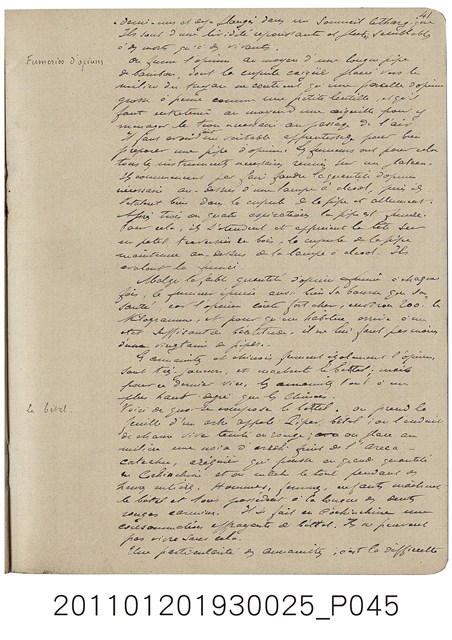 41
demi-nus et plongés dans un sommeil léthargique
ils sont d'une lividité repoussante et plutôt semblables
à des morts qu'à des vivants.
Fumeries d'opium
On fume l'opium au moyen d'une longue pipe
de bambou, dont la cupule placée vers le
milieu du tuyau ne contient qu'une parcelle d'opium
grosse à peine comme une petite lentille, et qu'il
faut entretenir au moyen d'une aiguille pour y
ménager le trou nécessaire au passage de l'air.
Il faut un véritable apprentissage pour bien
préparer une pipe d'opium. Les fumeurs ont pour cela
tous les instruments nécessaires réunis sur un plateau.
Ils commencent par faire fondre la quantité d'opium
nécessaire au-dessus d'une lampe à alcool, puis ils
l'étalent bien dans la cupule de la pipe et allument.
Après trois ou quatre aspirations la pipe est fumée.
Pour cela, ils s'étendent et appuient la tête sur
un petit traversin de bois, la cupule de la pipe
maintenue au-dessus de la lampe à alcool. Ils
avalent la fumée.
Malgré la faible quantité d'opium fumée à chaque
fois, le fumeur ruine aussi bien sa bourse que sa
santé car l'opium coûte fort cher, environ 200 le
kilogramme, et pour qu'un habitué arrive à un
état suffisant de béatitude, il ne lui faut pas moins
d'une vingtaine de pipes.
Les annamites et chinois fument également l'opium,
sont très joueurs, et mâchent le bétel; mais
pour ce dernier vice, les annamites l'ont à un
plus haut degré que les Chinois.
Le bétel.
Voici de quoi se compose le bétel. On prend la
feuille d'un arbre appelé Piper bétel; on l'enduit
de chaux vive teinte en rouge; on place au
milieu une noix d'arec fruit de l'areca-
catechu, aréquier qui pousse en grande quantité
en Cochinchine et on mâche le tout pendant des
heures entières. Hommes, femmes, enfants mâchent
le bétel et tous possèdent à la longue des dents
rouges carmin. Il se fait en Cochinchine une
consommation effrayante de bétel. Ils ne peuvent
pas vivre sans cela.
Une particularité des annamites, c'est la difficulté
201101201930025_P045